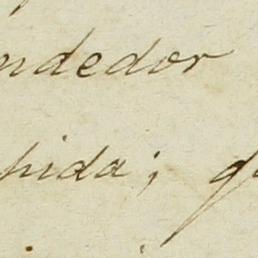 ndedor
hida; q